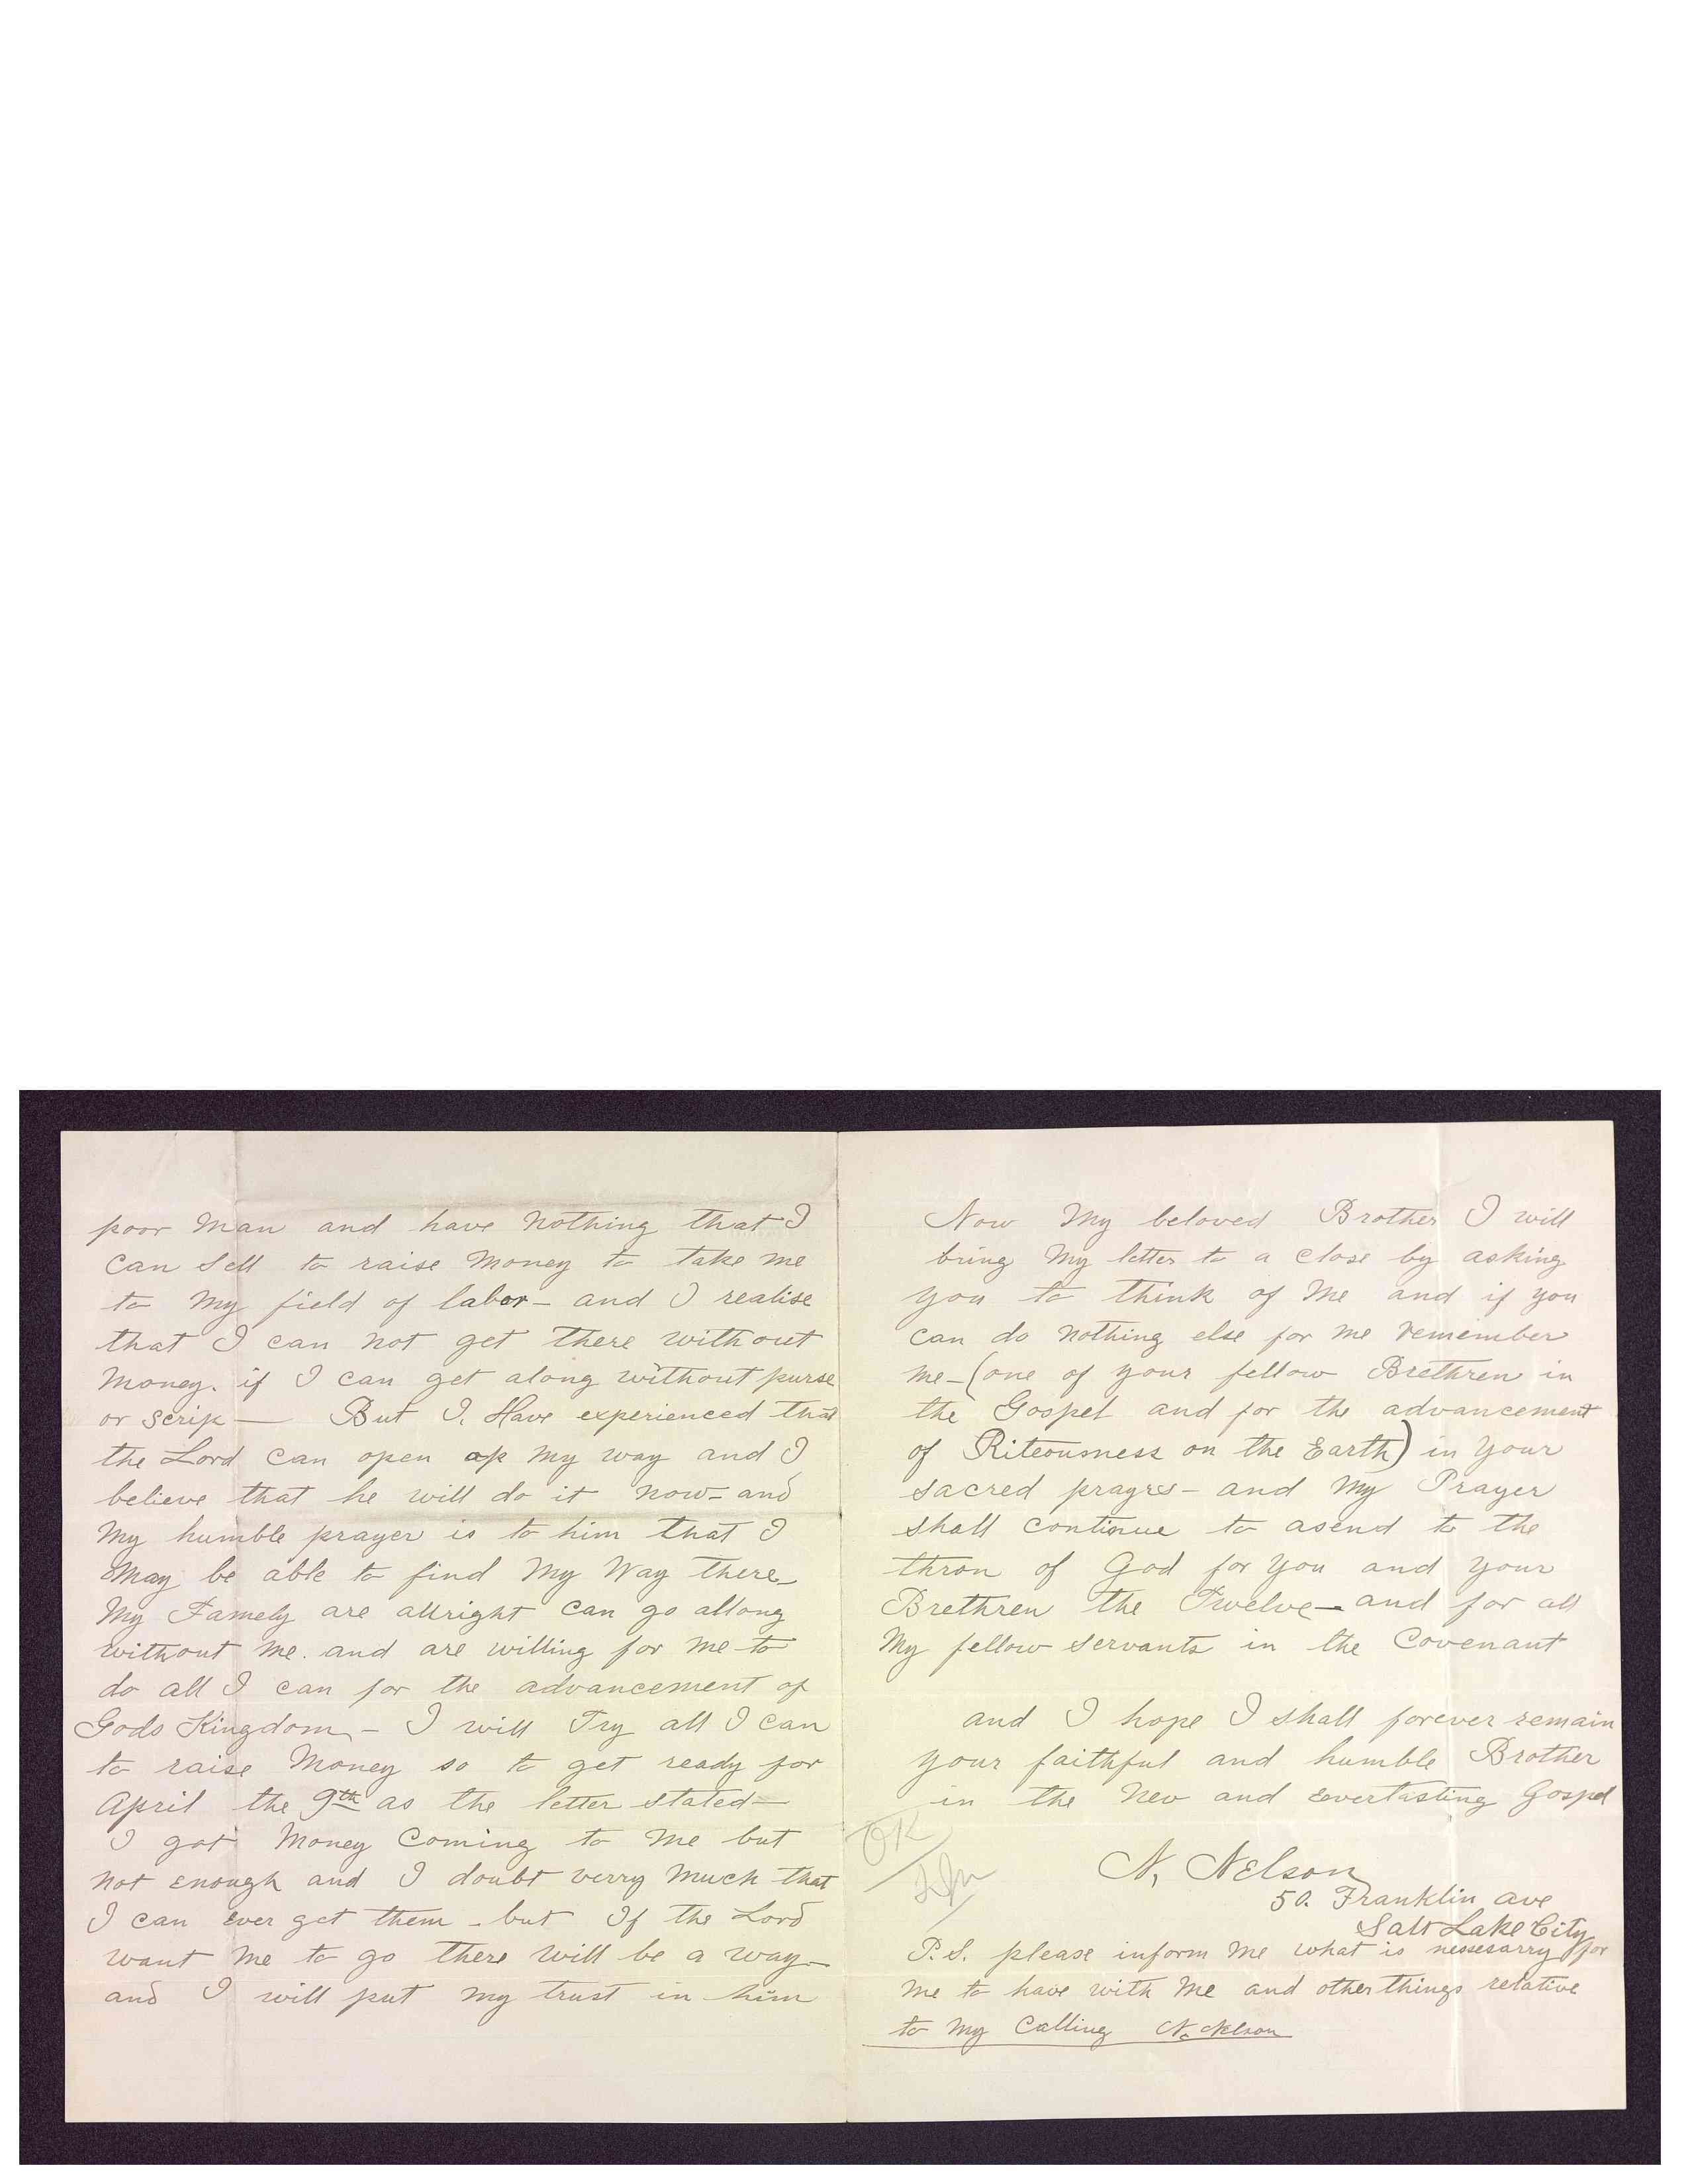 poor Man and have nothing that I
can sell to raise Money to take me
to My field of labor - and I realise
that I can not get there without
Money. if I can get along without purse
or scrip — But I, Have experienced that
the Lord can open op My way and I
believe that he will do it now - and
My humble prayer is to him that I
May be able to find My Way there -
My Famely are allright can go allong
without me. and are willing for me to
do all I can for the advancement of
Gods Kingdom - I will Try all I can
to raise Money so to get ready for
April the 9th as the letter stated —
I got Money Coming to Me but
not enough and I doubt verry Much that
I can ever get them - but If the Lord
want Me to go there will be a way -
and I will put My trust in him
Now My beloved Brother I will
bring My letter to a close by asking
you to think of Me and if you
can do nothing else for me remember
me - (one of your fellow Brethren in
the Gospel and for the advancement
of Riteousness on the Earth) in your
sacred prayrs - and My Prayer
shall continue to asend to the
thron of God for you and your
Brethren the Twelve - and for all
My fellow servants in the Covenant
and I hope I shall forever remain
your faithful and humble Brother
in the New and Everlasting Gospel
OK
N, Nelson
50. Franklin ave
Salt Lake City
P.S. please inform Me what is nessesarry for
me to have with Me and other things relative
to My Calling N. Nelson